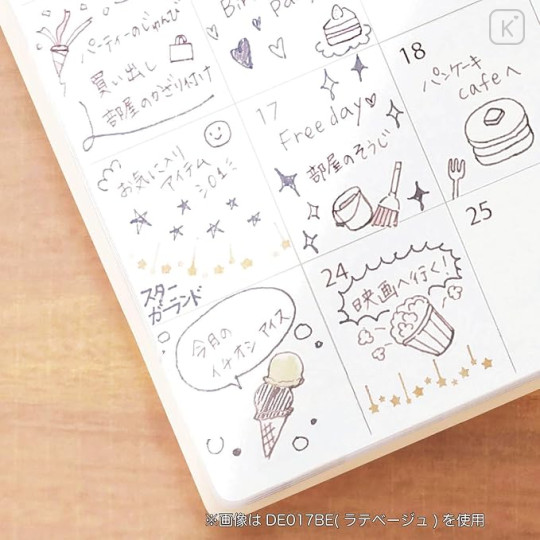 パーティーのじゅんび
買い出し
部屋のかざり付け
お気に入り
アイテム
17
Free day
部屋のそうじ
18
パンケーキ
cafeへ
スター
ガーランド
今日の
イチオシ アイス
24
映画へ行く!
25
K
※画像は DE017BE( ラテベージュ ) を使用